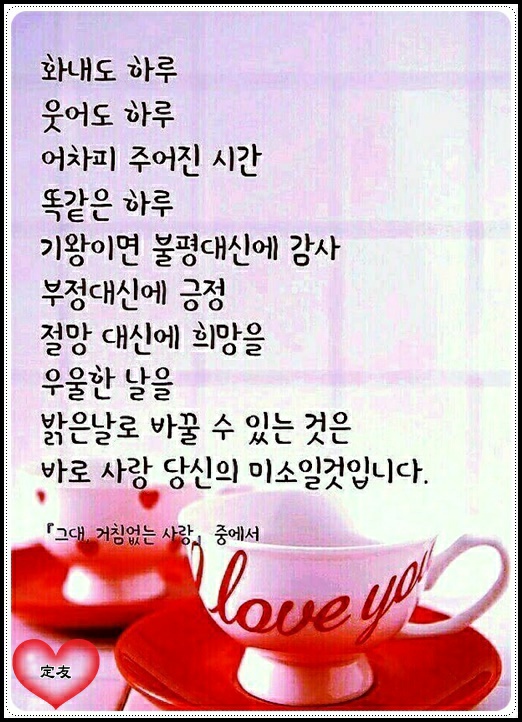 화내도 하루
웃어도 하루
어차피 주어진 시간
똑같은 하루
기왕이면 불평대신에 감사
부정대신에 긍정
절망 대신에 희망을
우울한 날을
밝은날로 바꿀 수 있는 것은
바로 사랑 당신의 미소일것입니다.
『그대, 거침없는 사랑』 중에서
I love you
定友